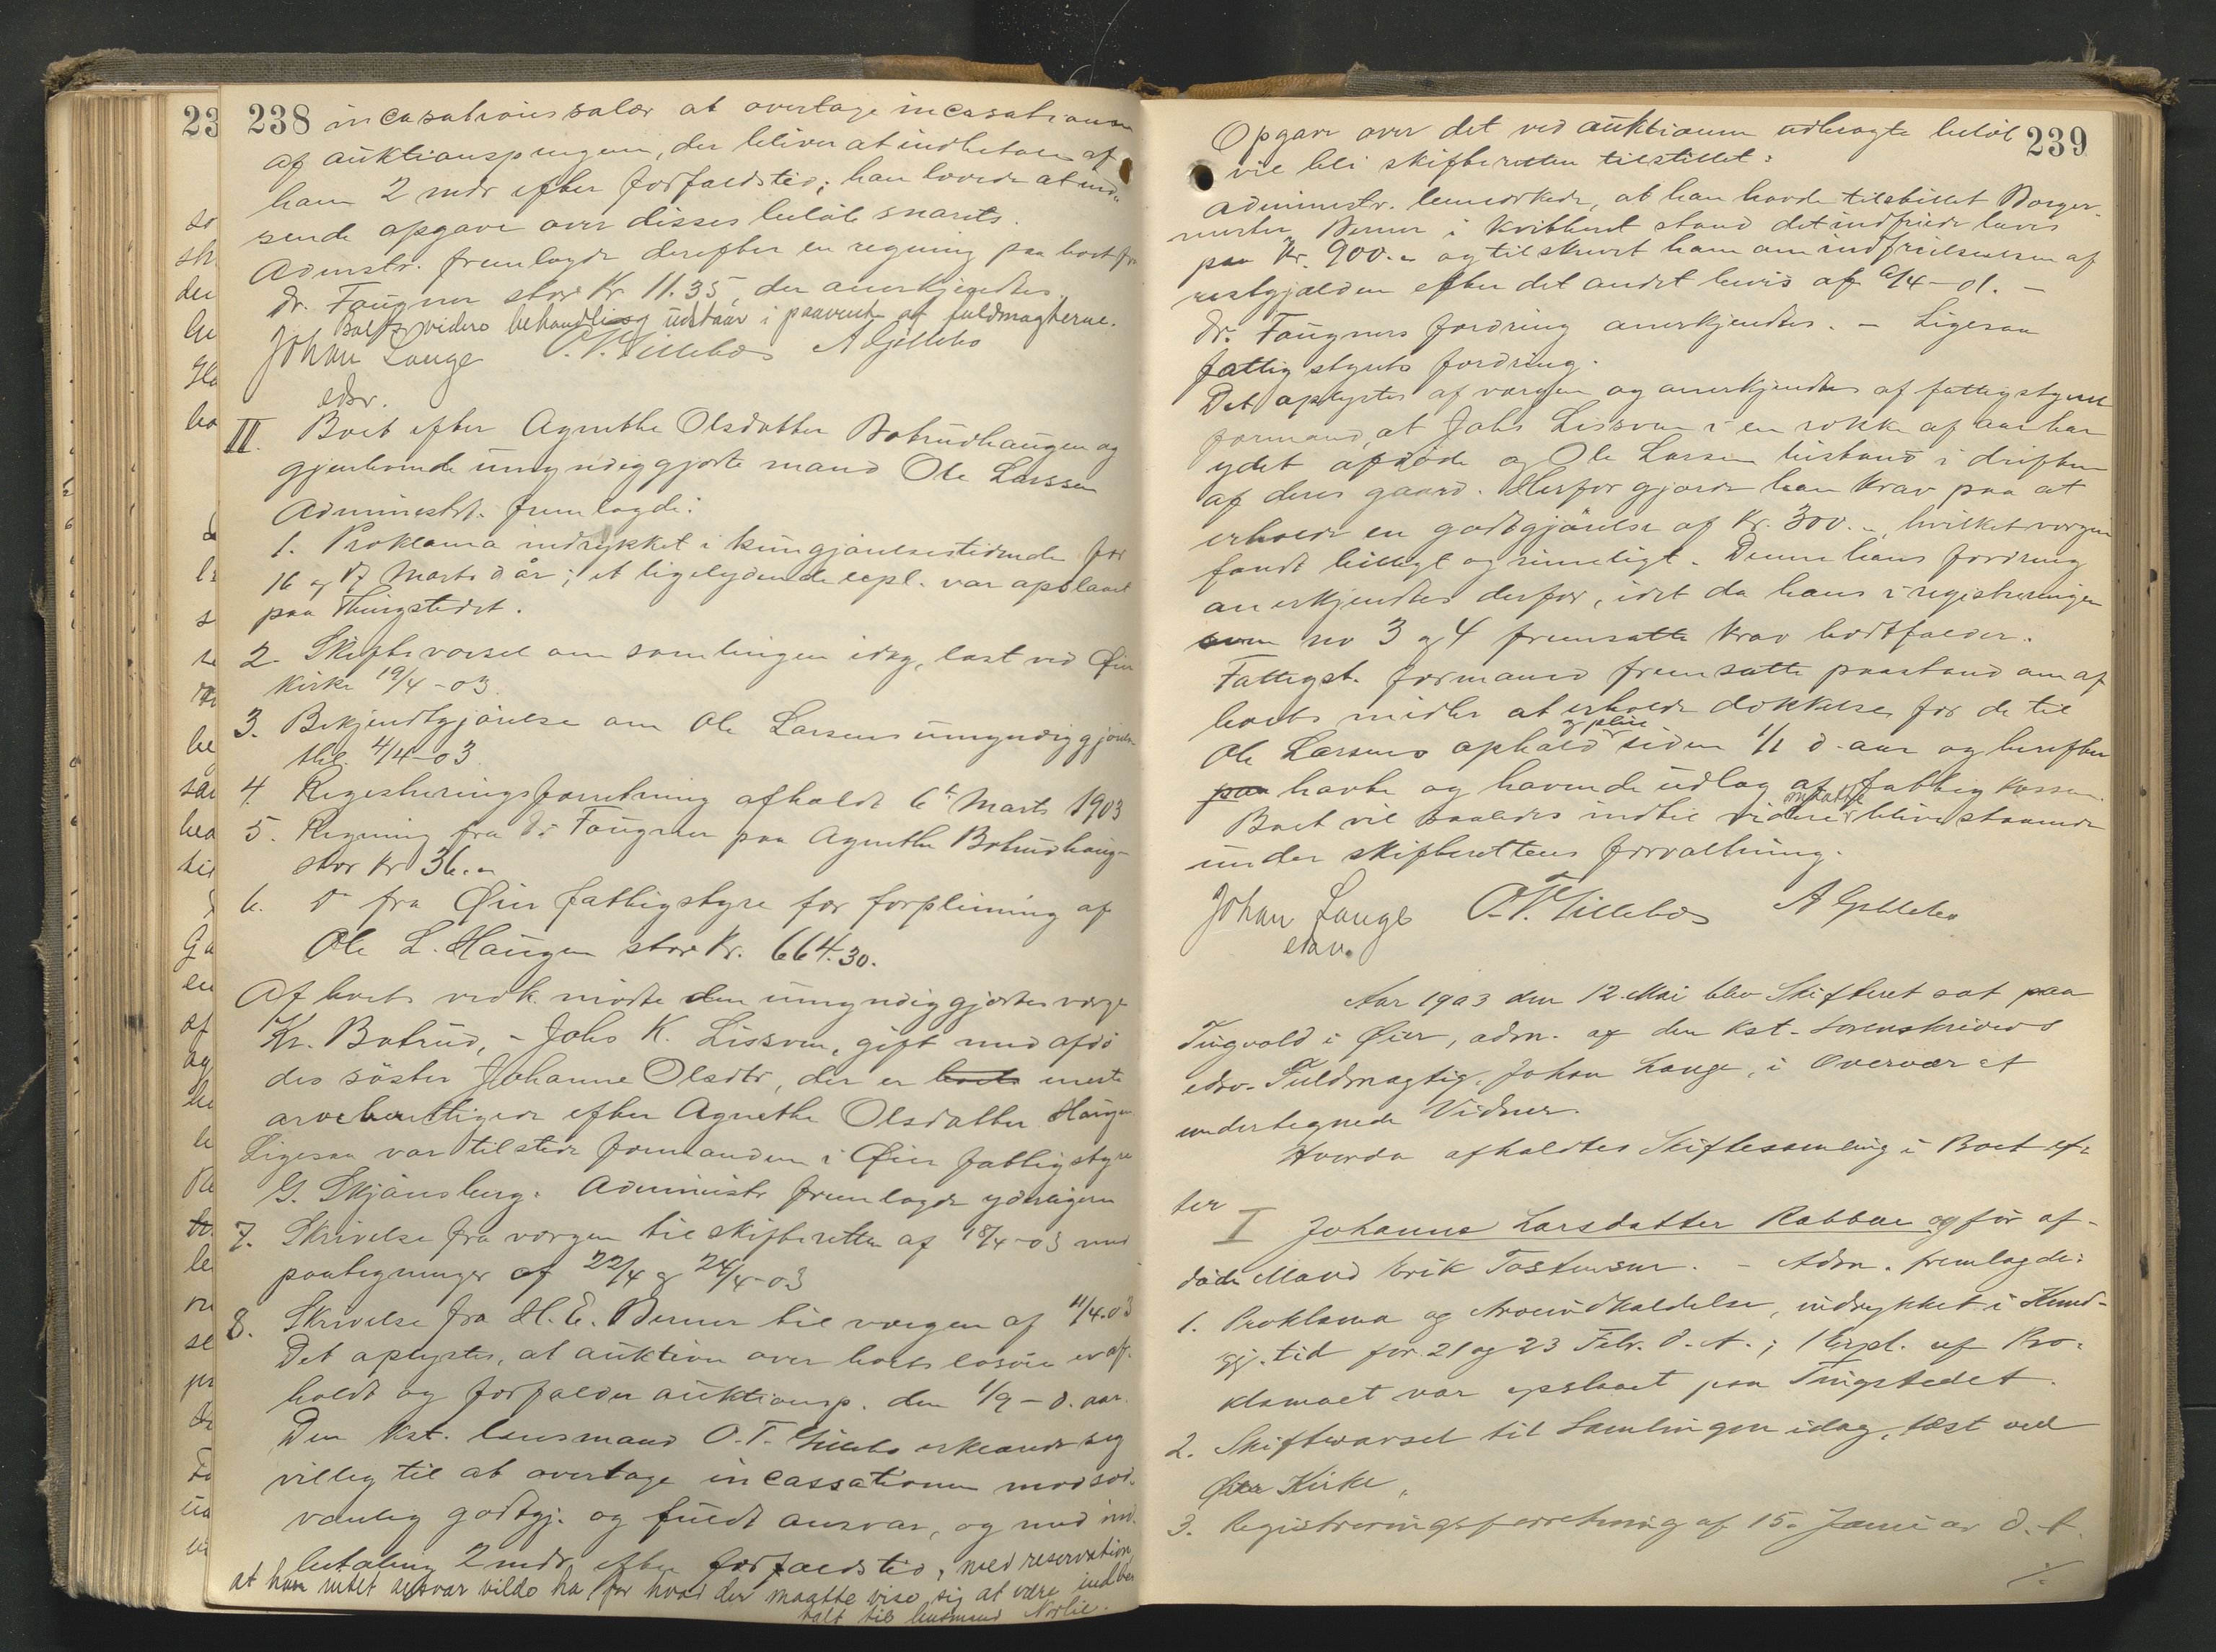 238 incasations salær at overtage incasationen
af auktionspengene, der bliver at indbetale af
ham 2 mdr efter forfaldstid; han lovede at ind-
sende opgave over disses beløb snarets.
Adminstr. fremlagde derefter en regning paa boet fra
dr. Faugner stor Kr 11.35, der anerkjendtes.
Boets videre behandling udstaar i paavente af fuldmagterne.
Johan Lange O. T. Gillebo A Gillebo
edsv.
II. Boet efter Agnethe Olsdatter Botrudhaugen og
gjenlevende umyndiggjorte mand Ole Larssen
Administr. fremlagde:
1. Proklama indrykket i kungjørelsestidende for
16 og 17 Marts d år; et ligelydende expl. var opslaaet
paa Thingstedet.
2. Skiftevarsel om samlingen idag, læst ved Øier
Kirke 19/4-03.
3. Bekjendtgjørelse om Ole Larsens umyndiggjørelse
thl. 4/4-03
4. Registreringsforretning afholdt 6te Marts 1903
5. Regning fra dr Faugner paa Agnethe Botrudhaug-
stor Kr 36.-
6. do fra Øier fattigstyre for forpleining af
Ole L. Haugen stor Kr. 664.30.
Af boets vedk. mødte den umyndiggjortes værge
Kr. Botrud, - Johs K. Lissven, gift med afdø
des søster Johanne Olsdtr, der er boets eneste
arveberettigede efter Agnethe Olsdatter Haugen
Ligesaa var tilstede formanden i Øier fattigstyre
G. Skjønsberg. Administr fremlagde yderligere
7. Skrivelse fra værgen til skifteretten af 18/4-03 med
paategninger af 22/4 & 24/4-03
8. Skrivelse fra H. E. Berner til værgen af 11/4.03
Det oplystes, at auktion over boets løsøre er af-
holdt og forfalder auktionsp. den 1/9 - d. aar.
Den kst. lensmand O. T. Gillebo erklærede sig
villig til at overtage incassationen mod sæd-
vanlig godtgj. og fuldt ansvar, og med ind-
betaling 2 mdr. efter forfaldstid, med reservation
at han intet ansvar vilde ha for hvad der maatte vise sig at være indbe
talt til lensmand Norlie.
239
Opgave over det ved auktionen udbragte beløb
vil bli skifteretten tilstillet:
Administr. bemærkede, at han havde tilstillet Borger-
mester Berner i kvitteret stand det indfriede bevis
paa Kr. 900.- og tilskrevet ham om indfrielsen af
restgjælden efter det andet bevis af 9/4-01. -
Dr. Faugners fordring anerkjendtes. - Ligesaa
fattigstyrets fordring.
Det oplystes af værgen og anerkjendtes af fattigstyrets
formand, at Johs Lissven i en række af aar har
ydet afdøde og Ole Larsen bistand i driften
af deres gaard. Herfor gjorde han krav paa at
erholde en godtgjørelse af Kr. 300.-, hvilket værgen
fandt billigt og rimeligt. Denne hans fordring
anerkjendtes derfor, idet da hans i registreringen
som no 3 og 4 fremsatte krav bortfalder.
Fattigst. formand fremsatte paastand om af
boets midler at erholde dækkelse for de til
og pleie
Ole Larsens ophold siden 1/1 d. aar og herefter
paa havte og havende udlæg af fattigkassen.
Boet vil saaledes indtil videre blive staaende
under skifterettens forvaltning.
Johan Lange O. T. Gillebo A Gillebo
edsv.
Aar 1903 den 12 Mai blev Skifteret sat paa
Tingvold i Øier, adm. af den kst. Sorenskrivers
edsv. Fuldmægtig, Johan Lange, i Overvær af
undertegnede Vidner.
Hvorda afholdtes Skiftesamling i Boet ef-
ter
I Johanne Larsdatter Rabben og før af-
døde Mand Erik Tostensen. - Adm. fremlagde:
1. Proklama og Arveindkaldelse, indrykket i Kund-
gj. tid for 21 og 23 Febr. d. A.; 1 Expl. af Pro-
klamaet var opslaaet paa Tingstedet.
2. Skiftevarsel til Samlingen idag, læst ved
Øier Kirke,
3. Registreringsforretning af 15. Januar d. A.